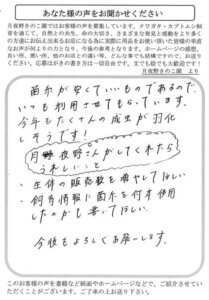 あなた様の声をお聞かせください
月夜野きのこ園ではお客様の声を募集しています。クワガタ・カブトムシ飼
育を通じて、自然との共生、命の大切さ、さまざまな発見と感動をより多く
の方達にお伝え出来るお店になる為に実際に用品をお使い頂いた皆様の率直
なお声が何よりの力となり、今後の参考となります。ホームページの感想、
良い所、悪い所、他のお店との違い等、どんな事でも結構ですので、お送り
ください。応募はがきの書き方は一切自由です。文でも絵でも大歓迎です！
月夜野きのこ園 より
菌糸が安くていいものであるので、
いつも利用させてもらっています。
今年もたくさんの成虫が羽化
しそうです！
月夜野さんがしてくれたら
うれしいこと
・生体の販売数を増やしてほしい
・飼育情報に菌糸を何本使用
したのかも書いてほしい
今後もよろしくお願いします。
このお客様の声を書籍など紙面やホームページなどで、ご紹介させていた
だくことがございます。ご了承の上お送り下さい。